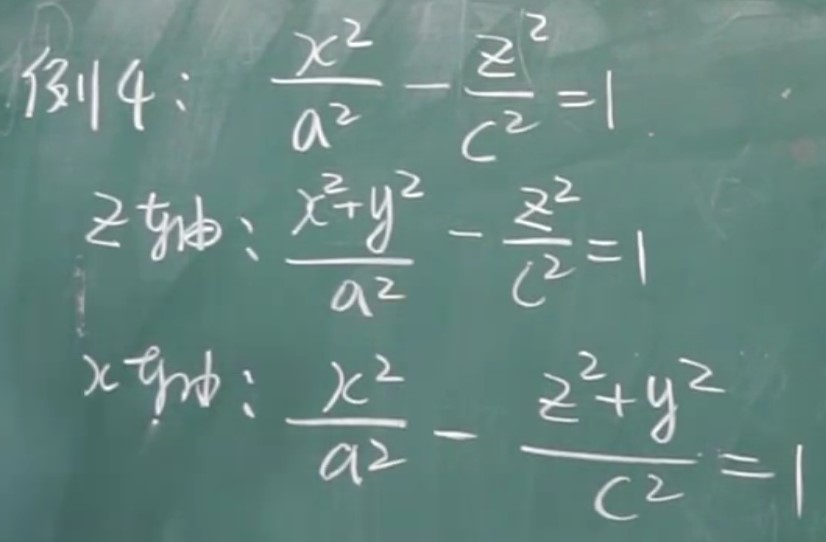 例4: x²/a² - z²/c² = 1
z轴: (x²+y²)/a² - z²/c² = 1
x轴: x²/a² - (z²+y²)/c² = 1